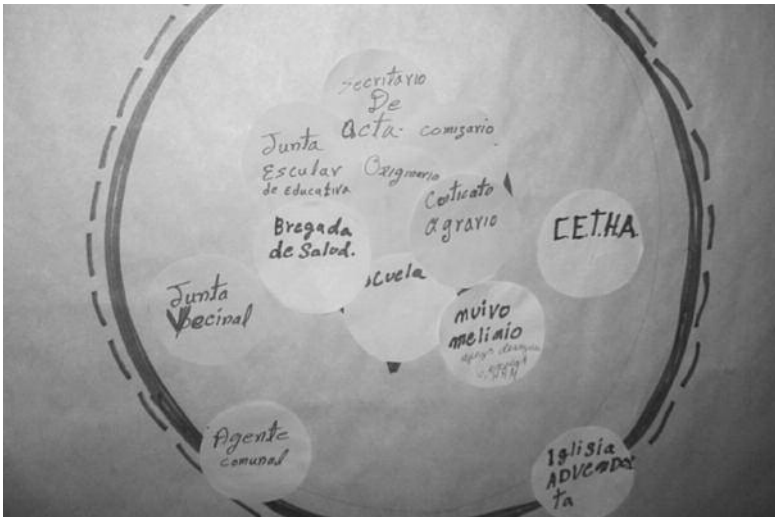 Secritario
De
Acta.
comizario
Junta
Escular
de educativa
Origmario
Corticato
agrario
Bregada
de Salud.
C.E.T.H.A.
scuela
Junta
Vecinal
muivo
melinio
Agente
comunal
Iglisia
ADVENDES
ta